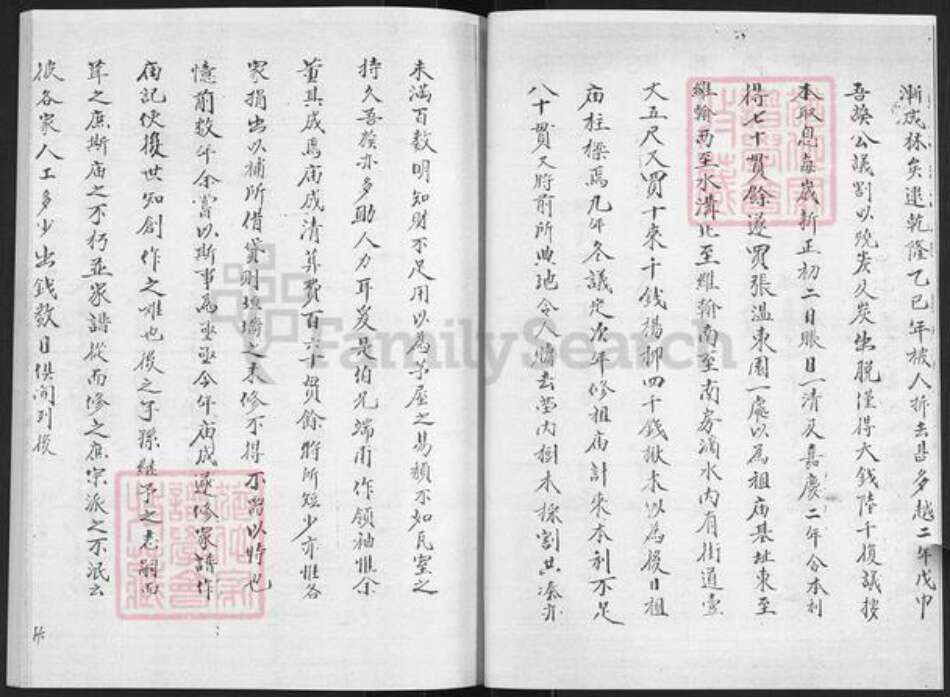 漸成林矣逮乾隆乙巳年被人折去甚多越二年戊申
吾族公議割以燒炭及炭出脫僅得大錢陸千復議撥
本取息每歲新正初二日賬目一清及嘉慶二年分本利
得七十貫餘遂買張溫東園一處以為祖廟基址東至
維翰西至水溝北至維翰南至南券滴水內有街道壹
丈五尺又買十來千錢楊柳四千錢椒木以為後日祖
廟柱樑焉九年冬議定次年修祖廟計來本利不足
八十貫又將前所典地令人贖去塋內樹木採割共湊亦
未滿百數明知財不足用以為茅屋之易頹不如瓦室之
持久吾族亦多助人力耳爰是伯兄端甫作領袖惟余
董其成焉廟成清算費百六十貫餘將所短少亦惟各
家捐出以補所借貸則垣墻之未修不得不留以待也
憶前數年余嘗以斯事為亟亟今年廟成遂修家譜作
廟記使後世知創作之難也後之子孫繼予之志嗣而
葺之庶斯廟之不朽並家譜從而修之庶宗派之不泯云
彼各家人工多少出錢數目俱開列後
FamilySearch